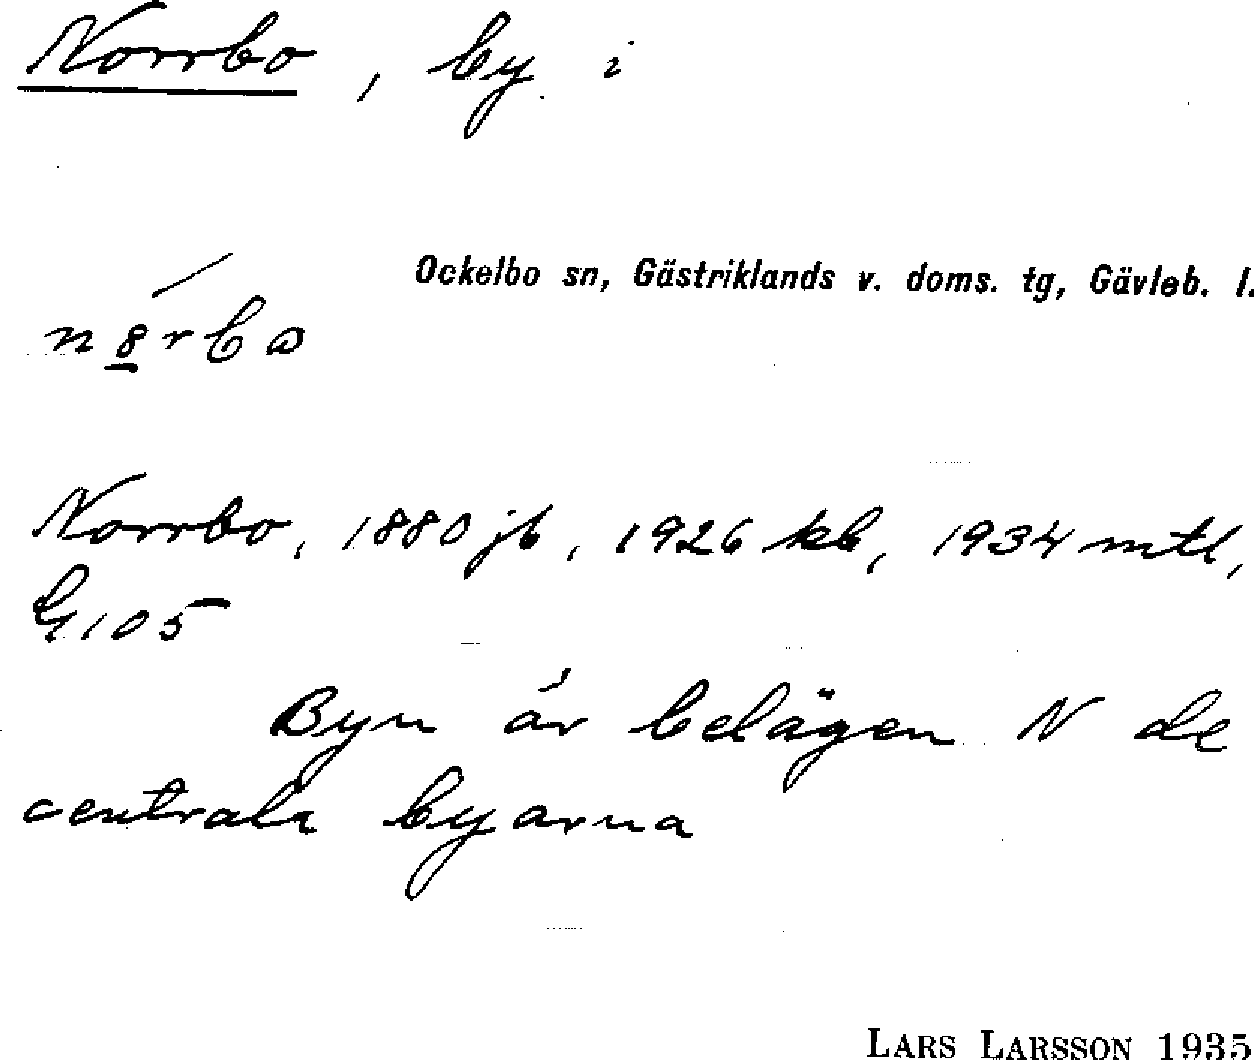 Norrbo, by i
Ockelbo sn, Gästriklands v. doms. tg, Gävleb. l.
Norrbo, 1880 jb, 1926 kb, 1934 mtl,
G 105
Byn är belägen N de
centrala byarna
LARS LARSSON 1935